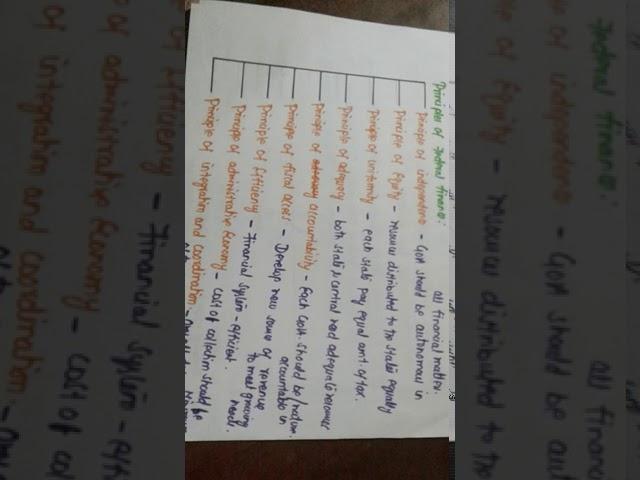 Principles of Federal finance:
Principle of independence - Govt should be autonomous in
all financial matter.
Principle of Equity - resources distributed to the states equally
Principle of uniformity - each state pay equal amt. of tax.
Principle of adequacy - both state & central need adequate resources
Principle of accountability - Each Govt. should be
accountable in
Principle of fiscal access - Develop new source of revenue
to meet growing
needs.
Principle of Efficiency - Financial System - Efficient.
Principle of administrative Economy - cost of collection should be
Principle of integration and coordination -